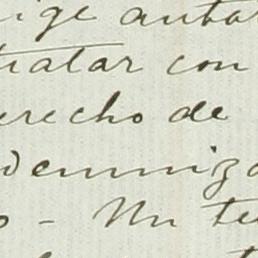 ige autor
tratar con
erecho de
demniza
o - Un te